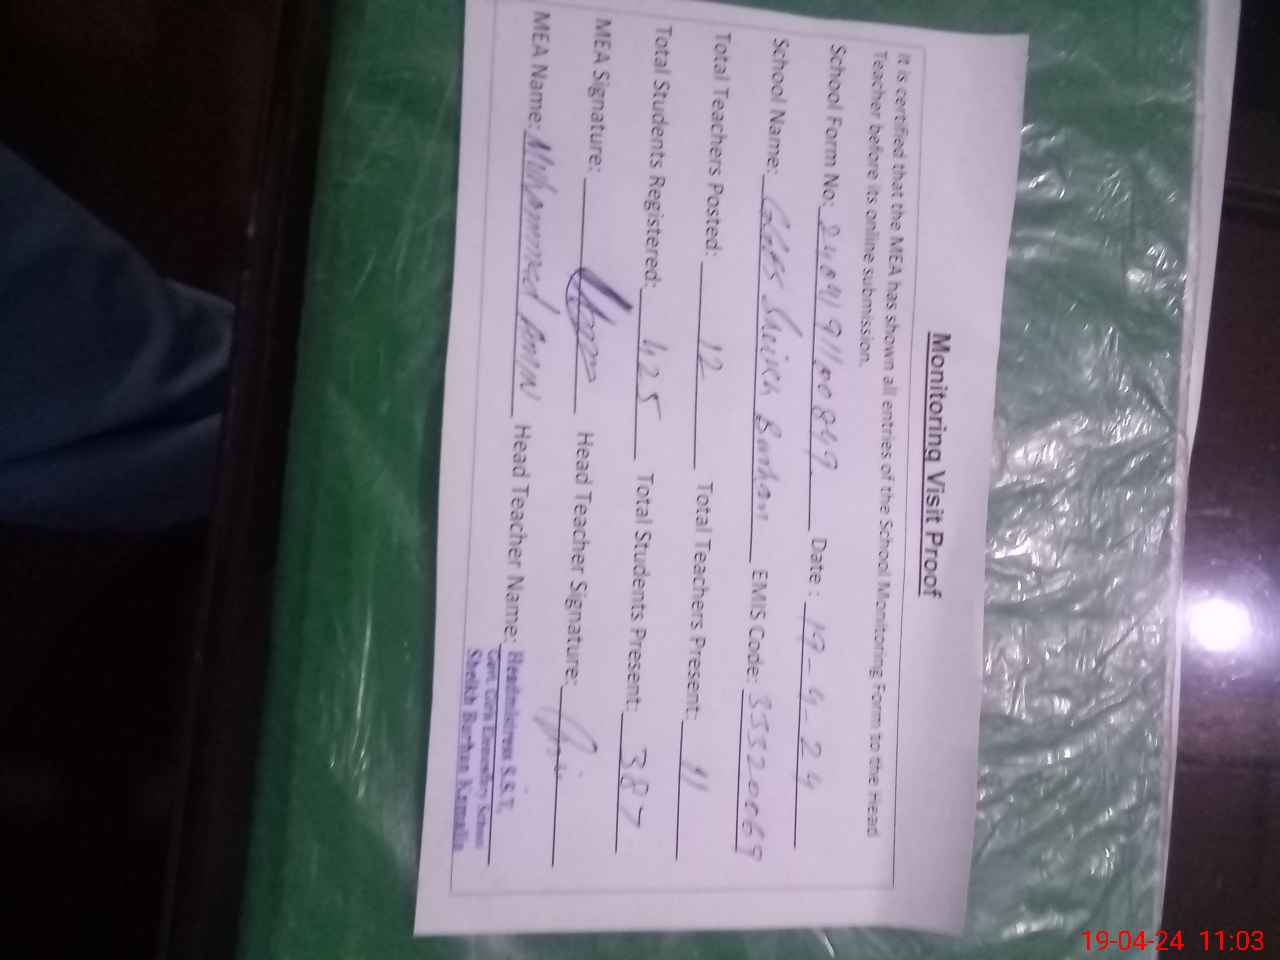 Monitoring Visit Proof
It is certified that the MEA has shown all entries of the School Monitoring Form to the Head
Teacher before its online submission.
School Form No: Date : 19-4-24
School Name: GGES Sheikh Burhan EMIS Code: 33320069
Total Teachers Posted: 12 Total Teachers Present: 11
Total Students Registered: 425 Total Students Present: 387
MEA Signature: Head Teacher Signature:
MEA Name: Muhammad Amin Head Teacher Name: Headmistress S.S.T.
Govt. Girls Elementary School
Sheikh Burhan Kamalia
19-04-24 11:03